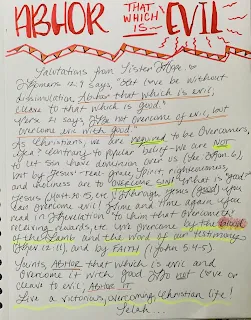 ABHOR THAT WHICH IS EVIL
Salutations from Sister Hope
Romans 12:9 says, "Let love be without
dissimulation. Abhor that which is evil,
cleave to that which is good."
verse 21 says "Be not overcome of evil, but
overcome evil with good."
As Christians, we are required to be Overcomers,
yea? Contrary to popular belief - We are NOT
to let sin have dominion over us (Rom. 6),
but by Jesus - real grace, Spirit, righteousness,
and holiness are to overcome sin/
"that is good"
Jesus (Mark 10:18, etc.) Through Jesus (good) you
can overcome evil time and time again. We
read in Revelation to him that overcometh
receiving rewards, etc. We overcome by the Blood
of the Lamb and the word of our testimony
(Rev 12:11), and by FAITH (1 John 5:4-5).
Saints, Abhor that which is evil and
overcome it with good. Do not love or
cleave to evil, ABHOR IT.
Live a victorious, overcoming Christian life!
Selah...